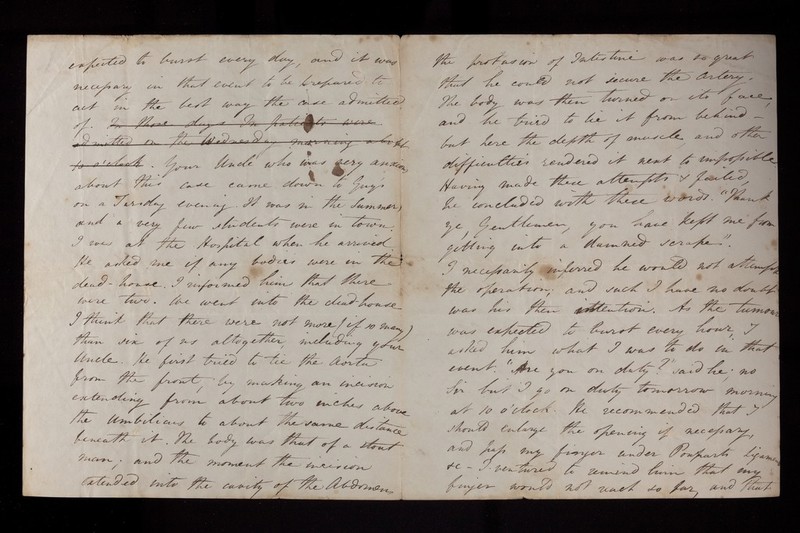 expected to burst every day, and it was
necessary in that event to be prepared to
act in the best way the case admitted
of. In those days In patients were
admitted on the Wednesday morning about
10 o'clock. Your Uncle who was very anxious
about this case came down to Guys
on a Tuesday evening It was in the Summer,
and a very few students were in town.
I was at the Hospital when he arrived
He asked me if any bodies were in the
dead-house. I informed him that there
were two. We went into the dead-house
I think that there were not more (if so many)
than six of us altogether, including your
Uncle. He first tried to tie the Aorta
from the front, by making an incision
extending from about two inches above
the Umbilicus to about the same distance
beneath it. The body was that of a stout
man; and the moment the incision
extended into the cavity of the Abdomen
the protusion of Intestine was so great
that he could not secure the Artery.
The body was then turned on its face,
and he tried to tie it from behind -
but here the depth of muscle and other
difficulties rendered it next to impossible
Having made these attempts & failed,
he concluded with these words. "Thank
ye, Gentlemen, you have kept me from
getting into a damned scrape".
I necessarily inferred he would not attempt
the operation, and such I have no doubt
was his then intention. As the tumour
was expected to burst every hour, I
asked him what I was to do in that
event. "Are you on duty?" said he; no
Sir but I go on duty tomorrow morning
at 10 o'clock. He recommended that I
should enlarge the opening if necessary,
and pass my finger under Pouparts Ligament
&c - I ventured to remind him that my
finger would not reach so far, and that